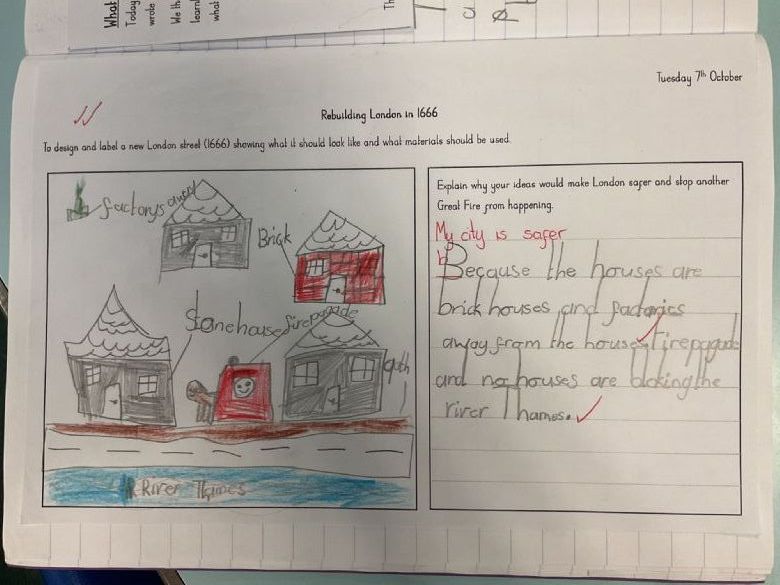 What
Today
wrote
We th
learn
what
Th
Tuesday 7th October
Rebuilding London in 1666
To design and label a new London street (1666) showing what it should look like and what materials should be used.
factorys away
Brick
Stonehouse
firepagade
path
River Thames
Explain why your ideas would make London safer and stop another
Great Fire from happening.
My city is safer
b
Because the houses are
brick houses and factories
away from the houses, firepagade
and no houses are bloking the
river Thames.